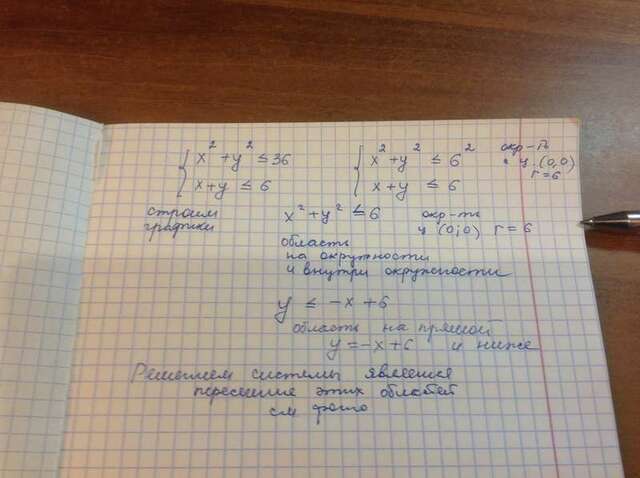 { x² + y² ≤ 36
x + y ≤ 6
{ x² + y² ≤ 6²
x + y ≤ 6
окр-ть
ц (0,0)
r = 6
строим
графики
x² + y² ≤ 6
окр-ть
ц (0;0) r = 6
область
на окружности
и внутри окружности
y ≤ -x + 6
область на прямой
y = -x + 6 и ниже
Решением системы является
пересечение этих областей
см фото